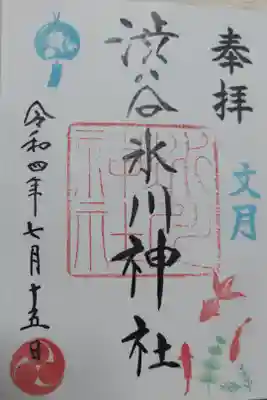 奉拝
文月
渋谷氷川神社
令和四年七月十五日